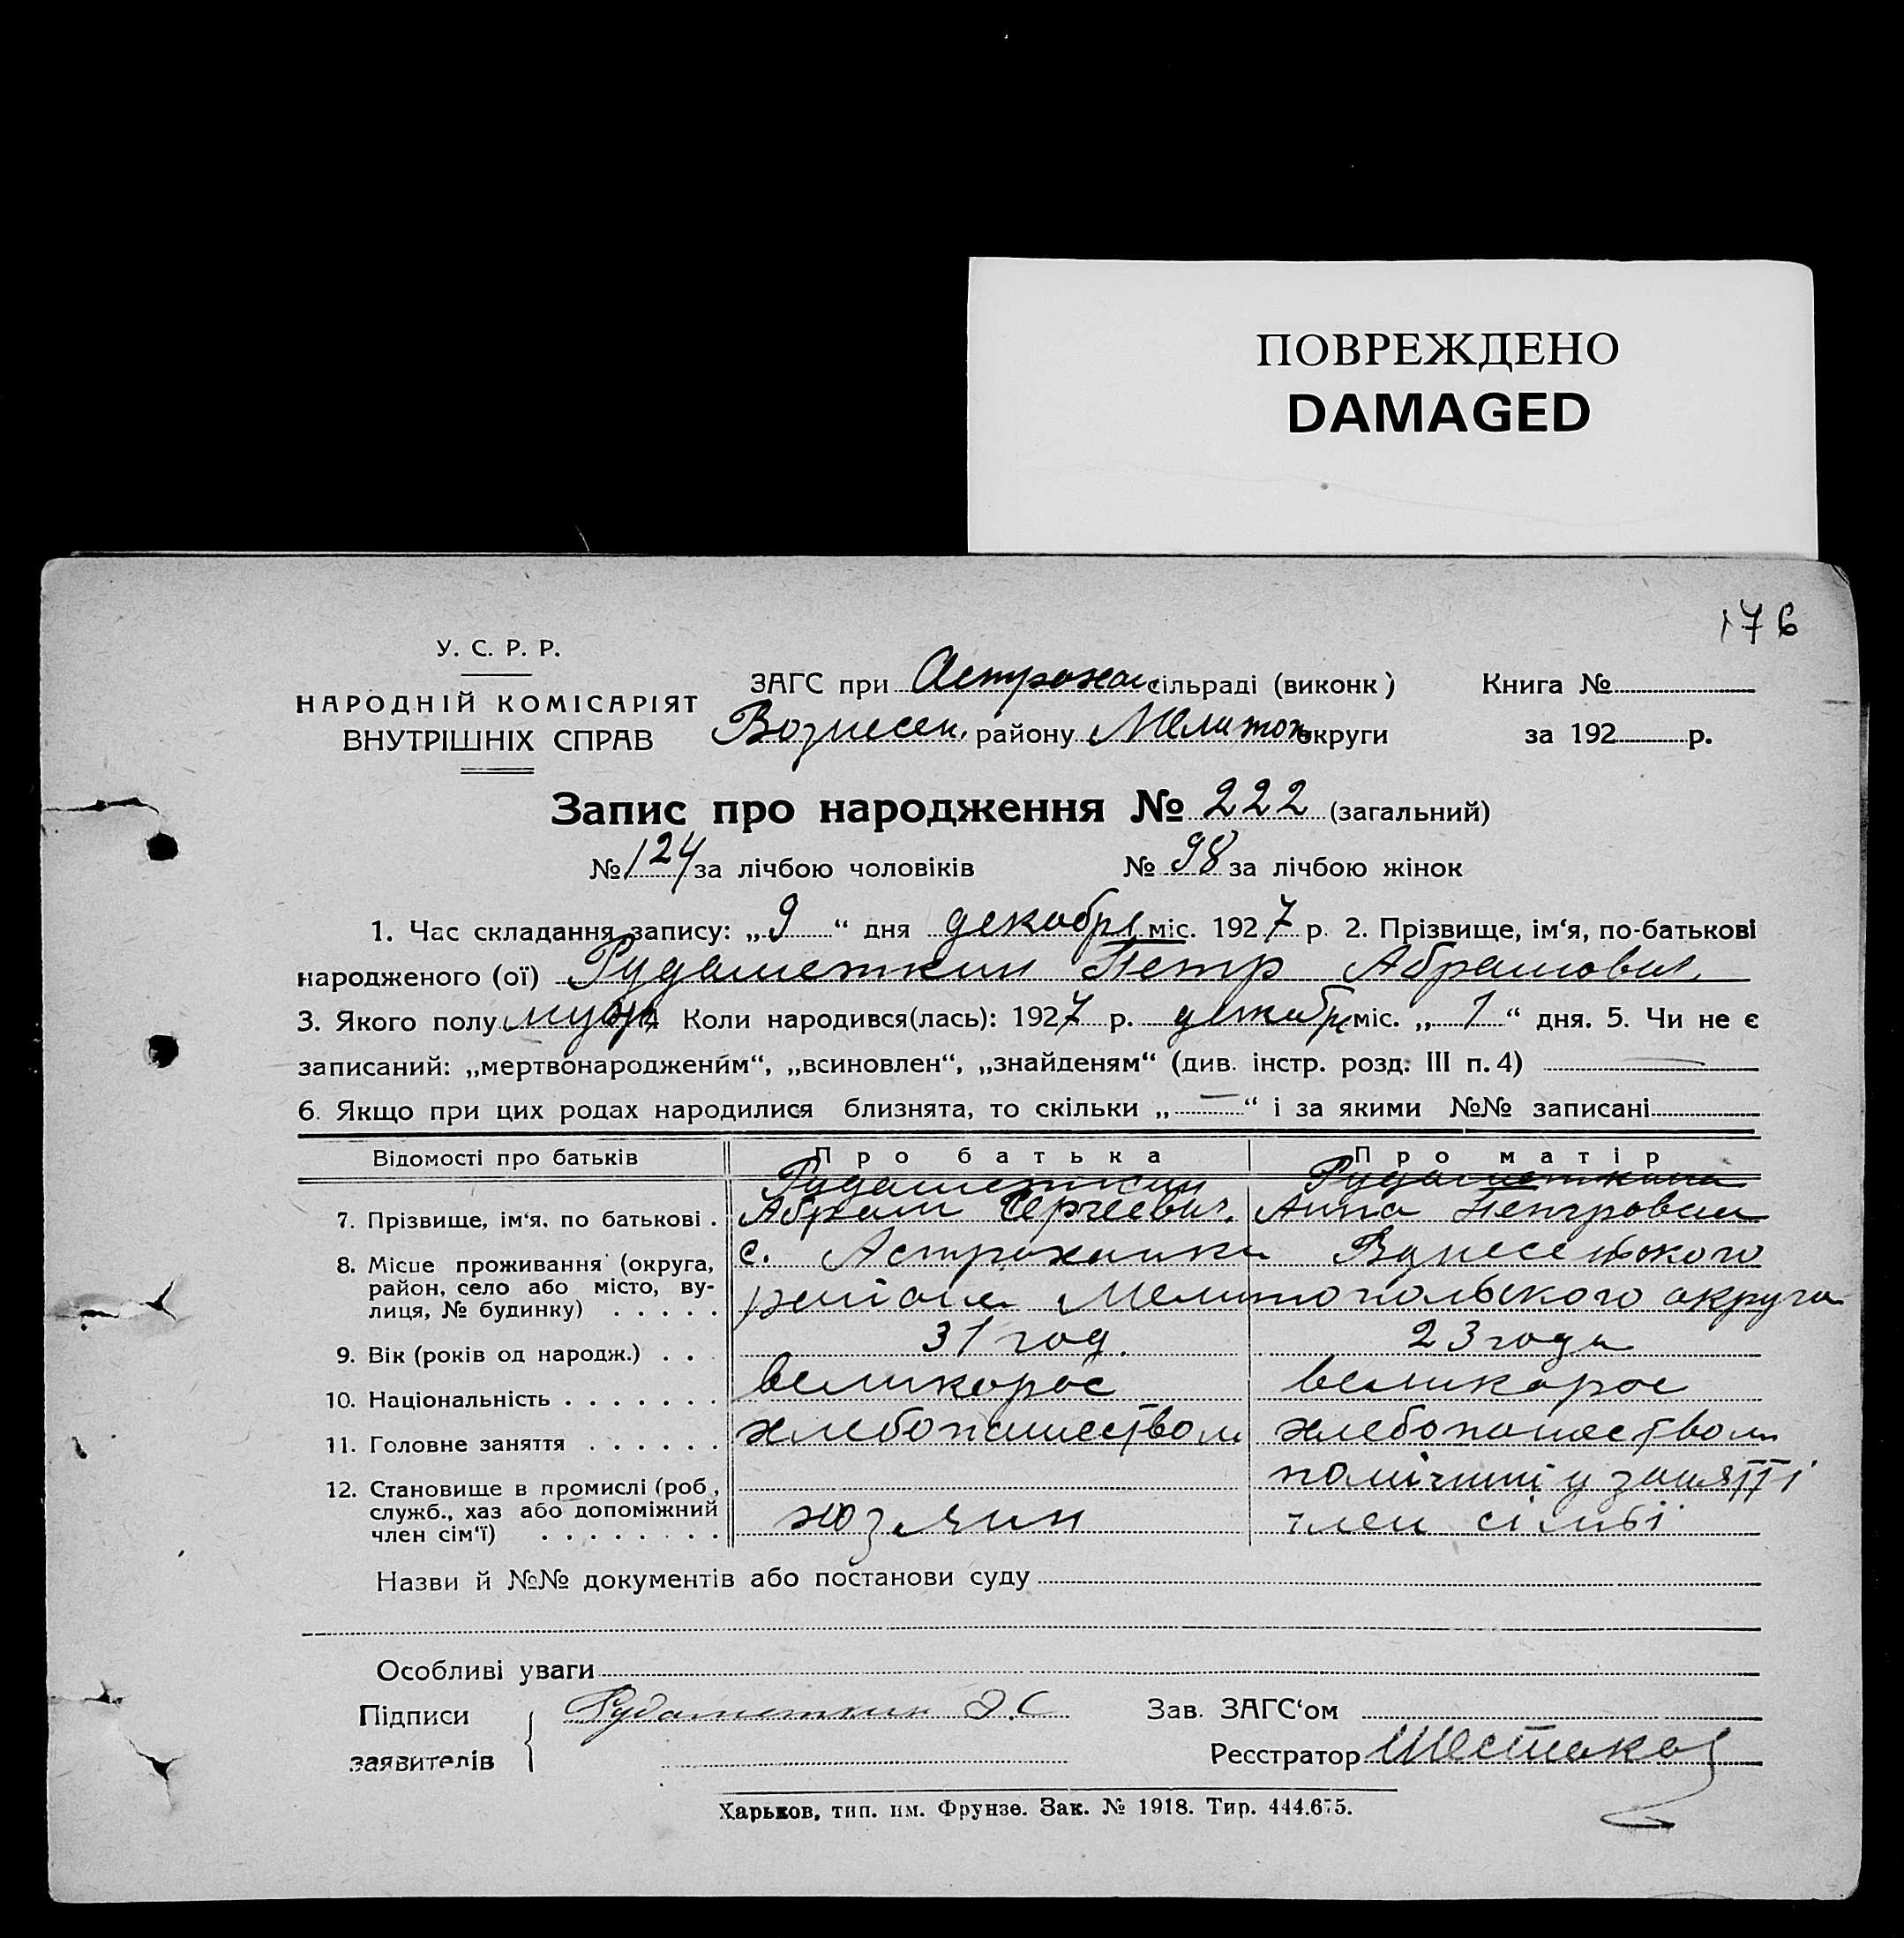 ПОВРЕЖДЕНО
DAMAGED
176
У. С. Р. Р.
НАРОДНІЙ КОМІСАРІЯТ
ВНУТРІШНІХ СПРАВ
ЗАГС при Астрахан. сільраді (виконк) Книга №
Вознесен. району Мелитоп. округи за 192 р.
Запис про народження № 222 (загальний)
№ 124 за лічбою чоловіків № 98 за лічбою жінок
1. Час складання запису: „ 9 “ дня декабря міс. 1927 р. 2. Прізвище, ім‘я, по-батькові
народженого (ої) Рудаметкин Петр Абрамович
3. Якого полу муж 4 Коли народився(лась): 1927 р. декабря міс. „ 1 “ дня. 5. Чи не є
записаний: „мертвонародженим“, „всиновлен“, „знайденям“ (див. інстр. розд: III п. 4) —
6. Якщо при цих родах народилися близнята, то скільки „ — “ і за якими №№ записані
Відомості про батьків Про батька Про матір
Рудаметкин Рудаметкина
7. Прізвище, ім‘я, по батькові . Абрам Сергеевич. Анна Петровна
8. Місце проживання (округа, район, село або місто, ву-лиця, № будинку) . . . . . с. Астраханка Вознесенского
района Мелитопольского округа
9. Вік (років од народж.) . . . 31 год. 23 года
10. Національність . . . . . . . великорос великорос
11. Головне заняття . . . . . . хлебопашеством хлебопашеством
12. Становище в промислі (роб, служб., хаз або допоміжний член сім‘ї) . . . . . . . . хозяин помічний у занятті
член сімьі
Назви й №№ документів або постанови суду
Особливі уваги
Підписи заявителів { Рудаметкин А.С Зав. ЗАГС‘ом
Реєстратор Шестаков
Харьков, тип. им. Фрунзе. Зак. № 1918. Тир. 444.675.